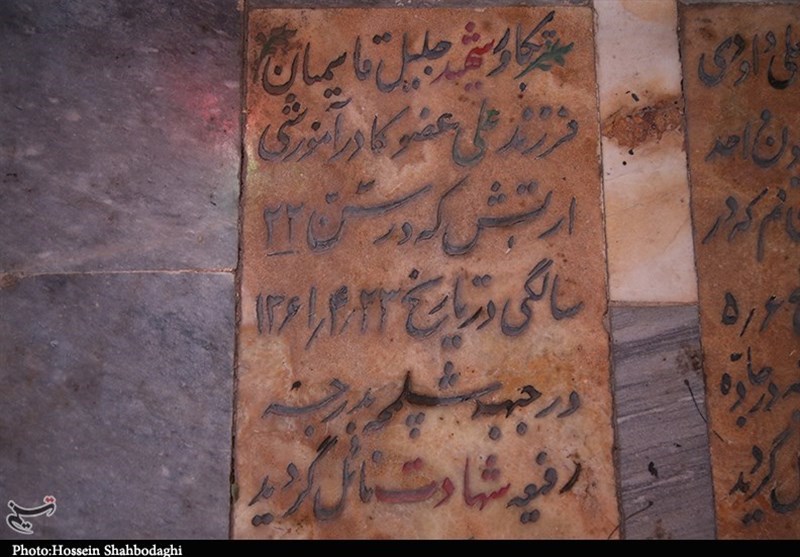 تکاور شهید جلیل قاسمیان
فرزند علی عضو کادر آموزشی
ارتش که در سن ۲۲
سالگی در تاریخ ۱۳۶۱٫۴٫۲۳
در جبهه شلمچه بدرجه
رفیعه شهادت نائل گردید
دُاودی
احد
که در
۵٫۶
در جادّه
گردید
تسنیم
Photo:Hossein Shahbodaghi